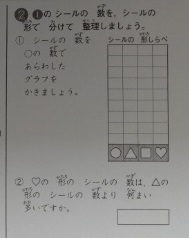 2 1のシールの 数を，シールの
形で 分けて 整理しましょう。
① シールの 数を
○の 数で
あらわした
グラフを
かきましょう。
シールの 形しらべ
② ♡の 形の シールの 数は，△の
形の シールの 数より 何まい
多いですか。